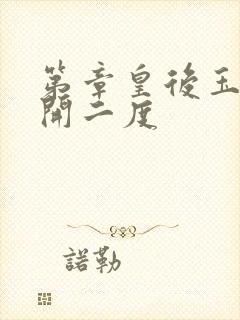 第章皇後玉
開二度
諾勒